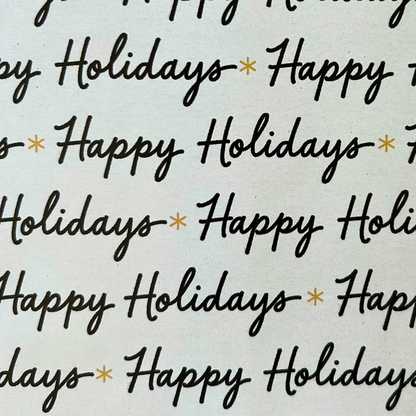 Happy Holidays
py Holidays * Happy H
s * Happy Holidays * H
Holidays * Happy Holi
Happy Holidays * Happ
days * Happy Holidays